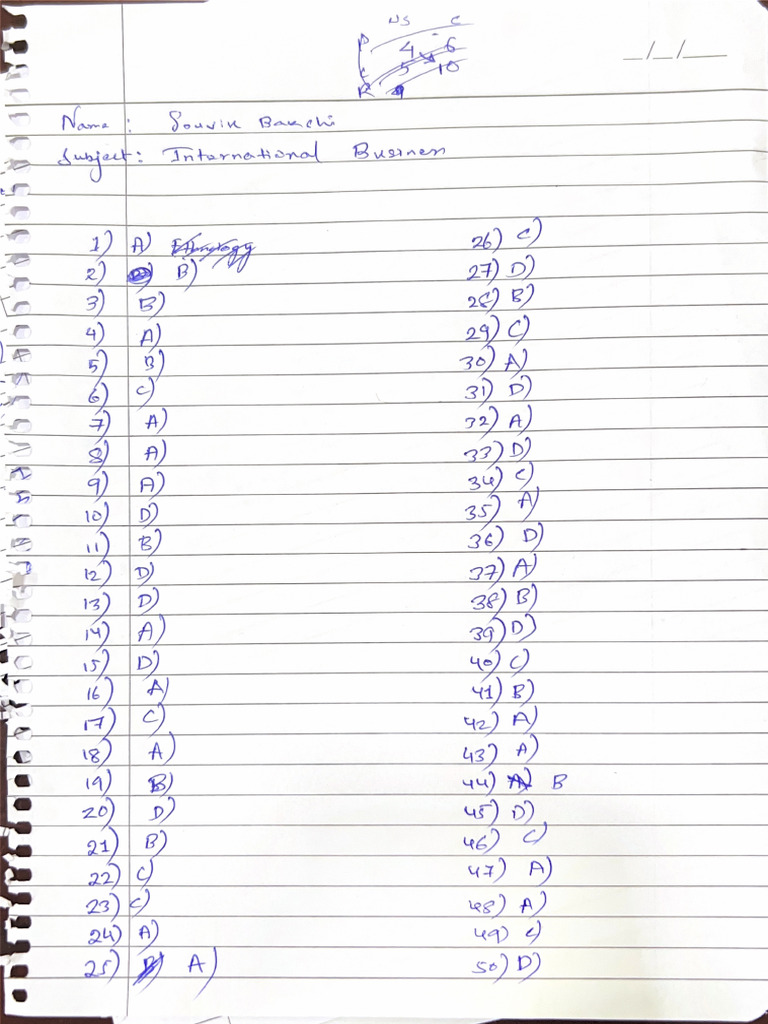 NS C
P 4 6
C 5 10
R 9
_/_/_
Name : Souvik Bakchi
Subject: International Business
1) A)
2) B)
3) B)
4) A)
5) B)
6) C)
7) A)
8) A)
9) A)
10) D)
11) B)
12) D)
13) D)
14) A)
15) D)
16) A)
17) C)
18) A)
19) B)
20) D)
21) B)
22) C)
23) C)
24) A)
25) A)
26) C)
27) D)
28) B)
29) C)
30) A)
31) D)
32) A)
33) D)
34) C)
35) A)
36) D)
37) A)
38) B)
39) D)
40) C)
41) B)
42) A)
43) A)
44) B
45) D)
46) C)
47) A)
48) A)
49) C)
50) D)